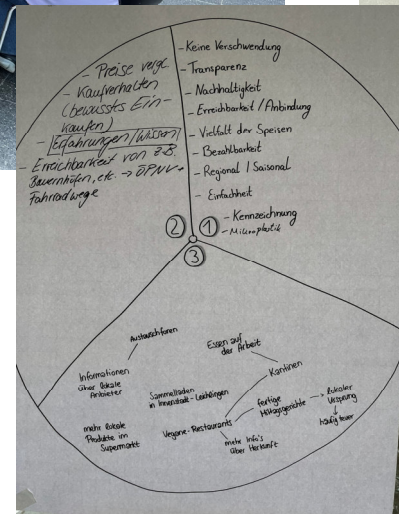 - Preise vergl.
- Kaufverhalten
(bewusstes Ein-
kaufen)
- Erfahrungen/Wissen
- Erreichbarkeit von z.B.
Bauernhöfen, etc. → ÖPNV
Fahrradwege
- Keine Verschwendung
- Transparenz
- Nachhaltigkeit
- Erreichbarkeit / Anbindung
- Vielfalt der Speisen
- Bezahlbarkeit
- Regional / Saisonal
- Einfachheit
- Kennzeichnung
- Mikroplastik
2
1
3
Austauschforen
Informationen
über lokale
Anbieter
mehr lokale
Produkte im
Supermarkt
Sammelladen
in Innenstadt-Leichlingen
Essen auf
der Arbeit
Kantinen
Vegane-Restaurants
fertige
Mittagsgerichte
→ lokaler
Ursprung
↓
häufig teuer
mehr Info's
über Herkunft